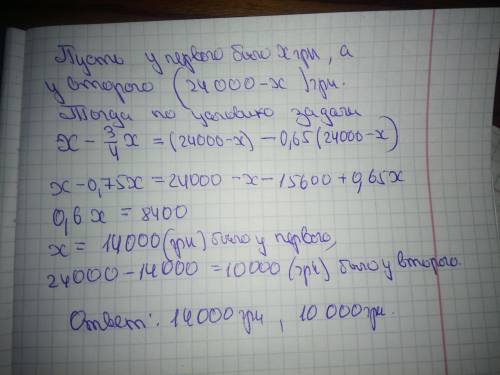 Пусть у первого было x грн, а
у второго (24 000 - x) грн.
Тогда по условию задачи
x - 3/4 x = (24000 - x) - 0,65 (24000 - x)
x - 0,75x = 24000 - x - 15600 + 0,65x
0,6 x = 8400
x = 14000 (грн) было у первого,
24000 - 14000 = 10000 (грн) было у второго.
Ответ: 14000 грн, 10 000 грн.